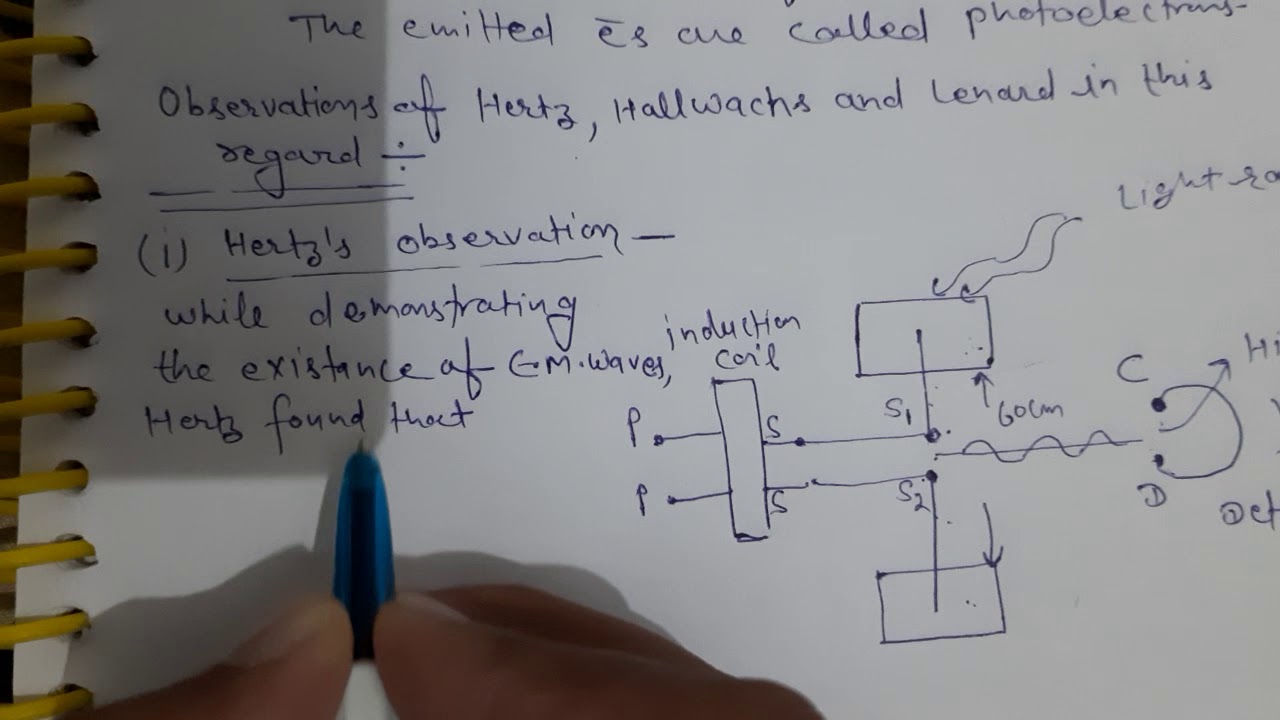 The emitted ēs are called photoelectrons.
Observations of Hertz, Hallwachs and Lenard in this
regard ÷
(i) Hertz's observation —
while demonstrating
the existance of E.M. waves,
Hertz found that
induction
coil
P
P
S
S
S1
S2
60cm
Light ra
C
D
Hi
Det